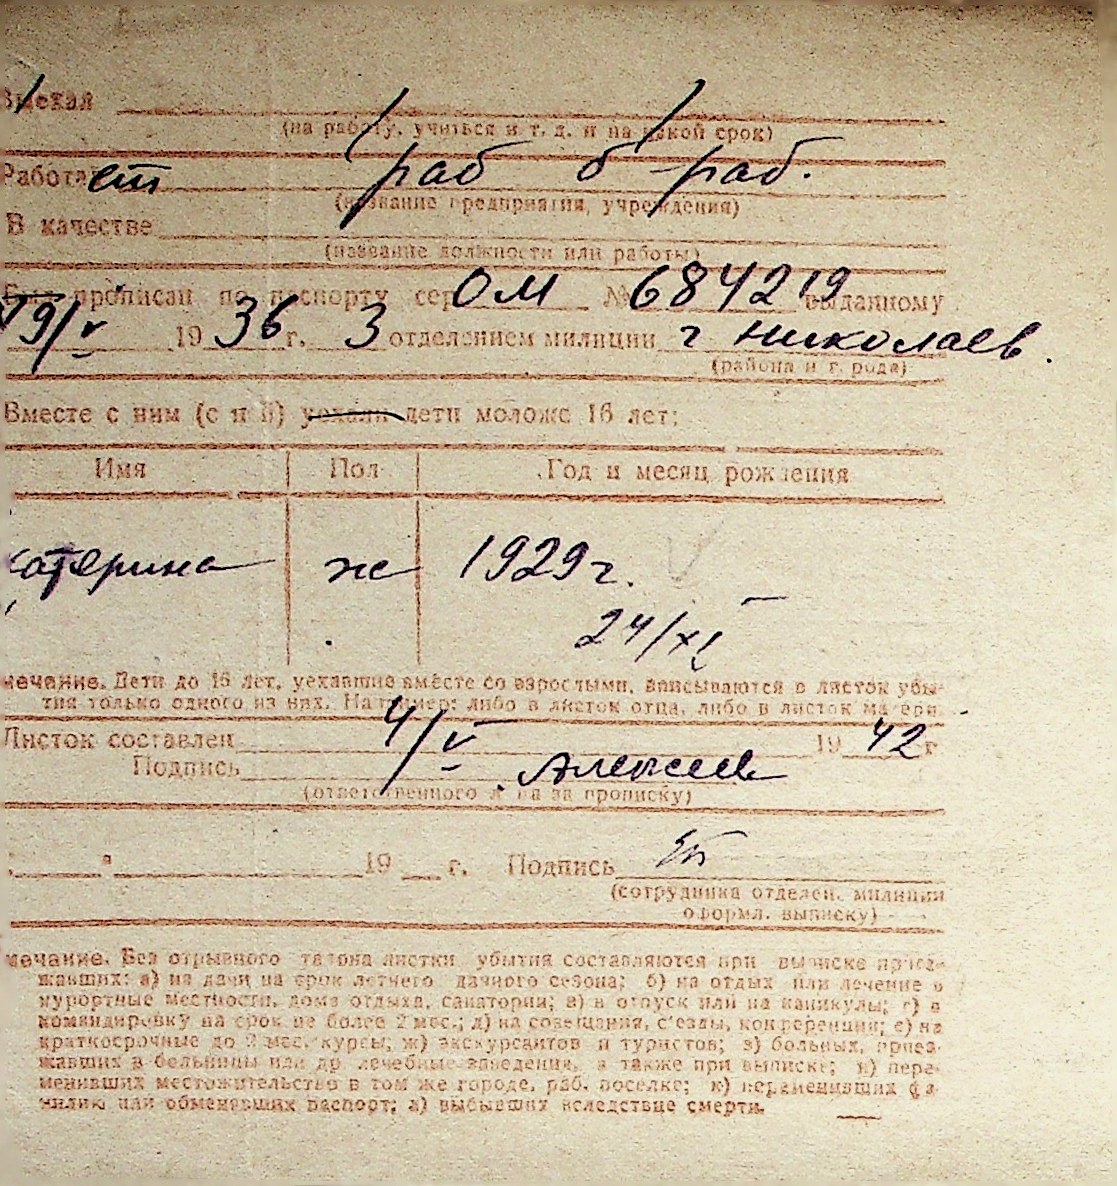 Выехал
(на работу, учиться и т. д. и на какой срок)
Работает раб б раб.
(название предприятия, учреждения)
В качестве
(название должности или работы)
Был прописан по паспорту сер ОМ № 684219 выданному
19/V 1936 г. 3 отделением милиции г Николаев.
(района и города)
Вместе с ним (с ней) уехали дети моложе 16 лет:
Имя Пол Год и месяц рождения
катерина ж 1929 г.
24/XI
мечание. Дети до 16 лет, уехавшие вместе со взрослыми, вписываются в листок убы-
тия только одного из них. Например: либо в листок отца, либо в листок матери.
Листок составлен 4/V 1942 г
Подпись Алексеев
(ответственного лица за прописку)
" 19 г. Подпись
(сотрудника отделен. милиции
оформл. выписку)
мечание. Без отрывного талона листки убытия составляются при выписке приез-
жавших: а) на дачи на срок летнего дачного сезона; б) на отдых или лечение в
курортные местности, дома отдыха, санатории; в) в отпуск или на каникулы; г) в
командировку на срок не более 2 мес.; д) на совещания, с'езды, конференции; е) на
краткосрочные до 2 мес. курсы; ж) экскурсантов и туристов; з) больных, приез-
жавших в больницы или др лечебные заведения, а также при выписке; и) пере-
менивших местожительство в том же городе, раб. поселке; к) переменивших фа-
милию или обменявших паспорт; л) выбывших вследствие смерти.